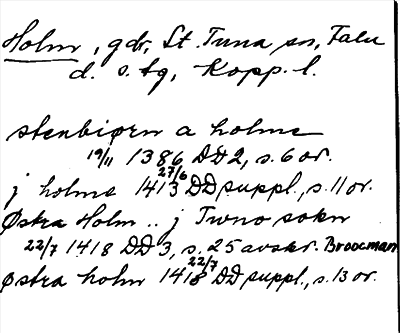 Holm, gdr, St. Tuna sn, Falu
d. s. tg, Kopp. l.
stenbiørn a holme
19/11 1386 DD 2, s. 6 or.
j holme 1413 27/6 DD suppl., s. 11 or.
Østra Holm .. j Twno sokn
22/7 1418 DD 3, s. 25 avskr. Brooman
Østra holm 1418 22/7 DD suppl., s. 13 or.